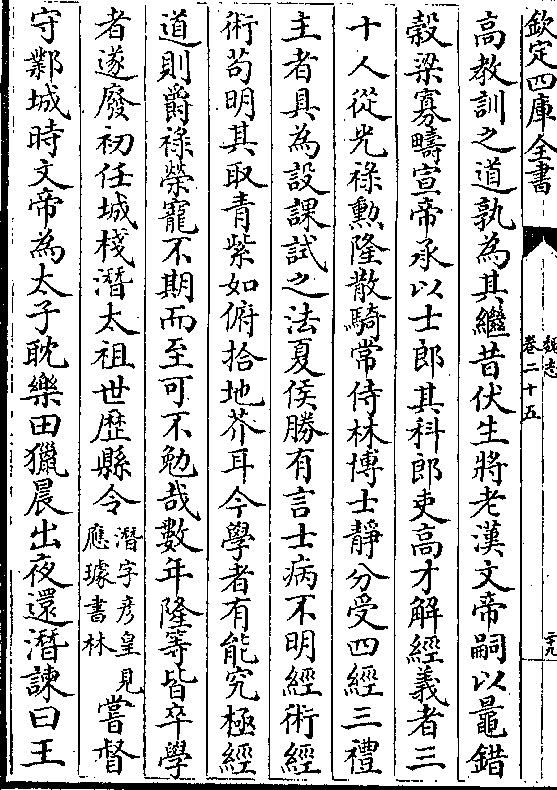 欽定四庫全書
魏志
卷二十五
二十九
高教訓之道孰為其繼昔伏生將老漢文帝嗣以鼂錯
榖梁寡疇宣帝承以士郎其科郎吏高才解經義者三
十人從光祿勲隆散騎常侍林博士靜分受四經三禮
主者具為設課試之法夏侯勝有言士病不明經術經
術苟明其取青紫如俯拾地芥耳今學者有能究極經
道則爵祿榮寵不期而至可不勉哉數年隆等皆卒學
者遂廢初任城棧潛太祖世歴縣令潛字彦皇見應璩書林嘗督
守鄴城時文帝為太子耽樂田獵晨出夜還潛諫曰王